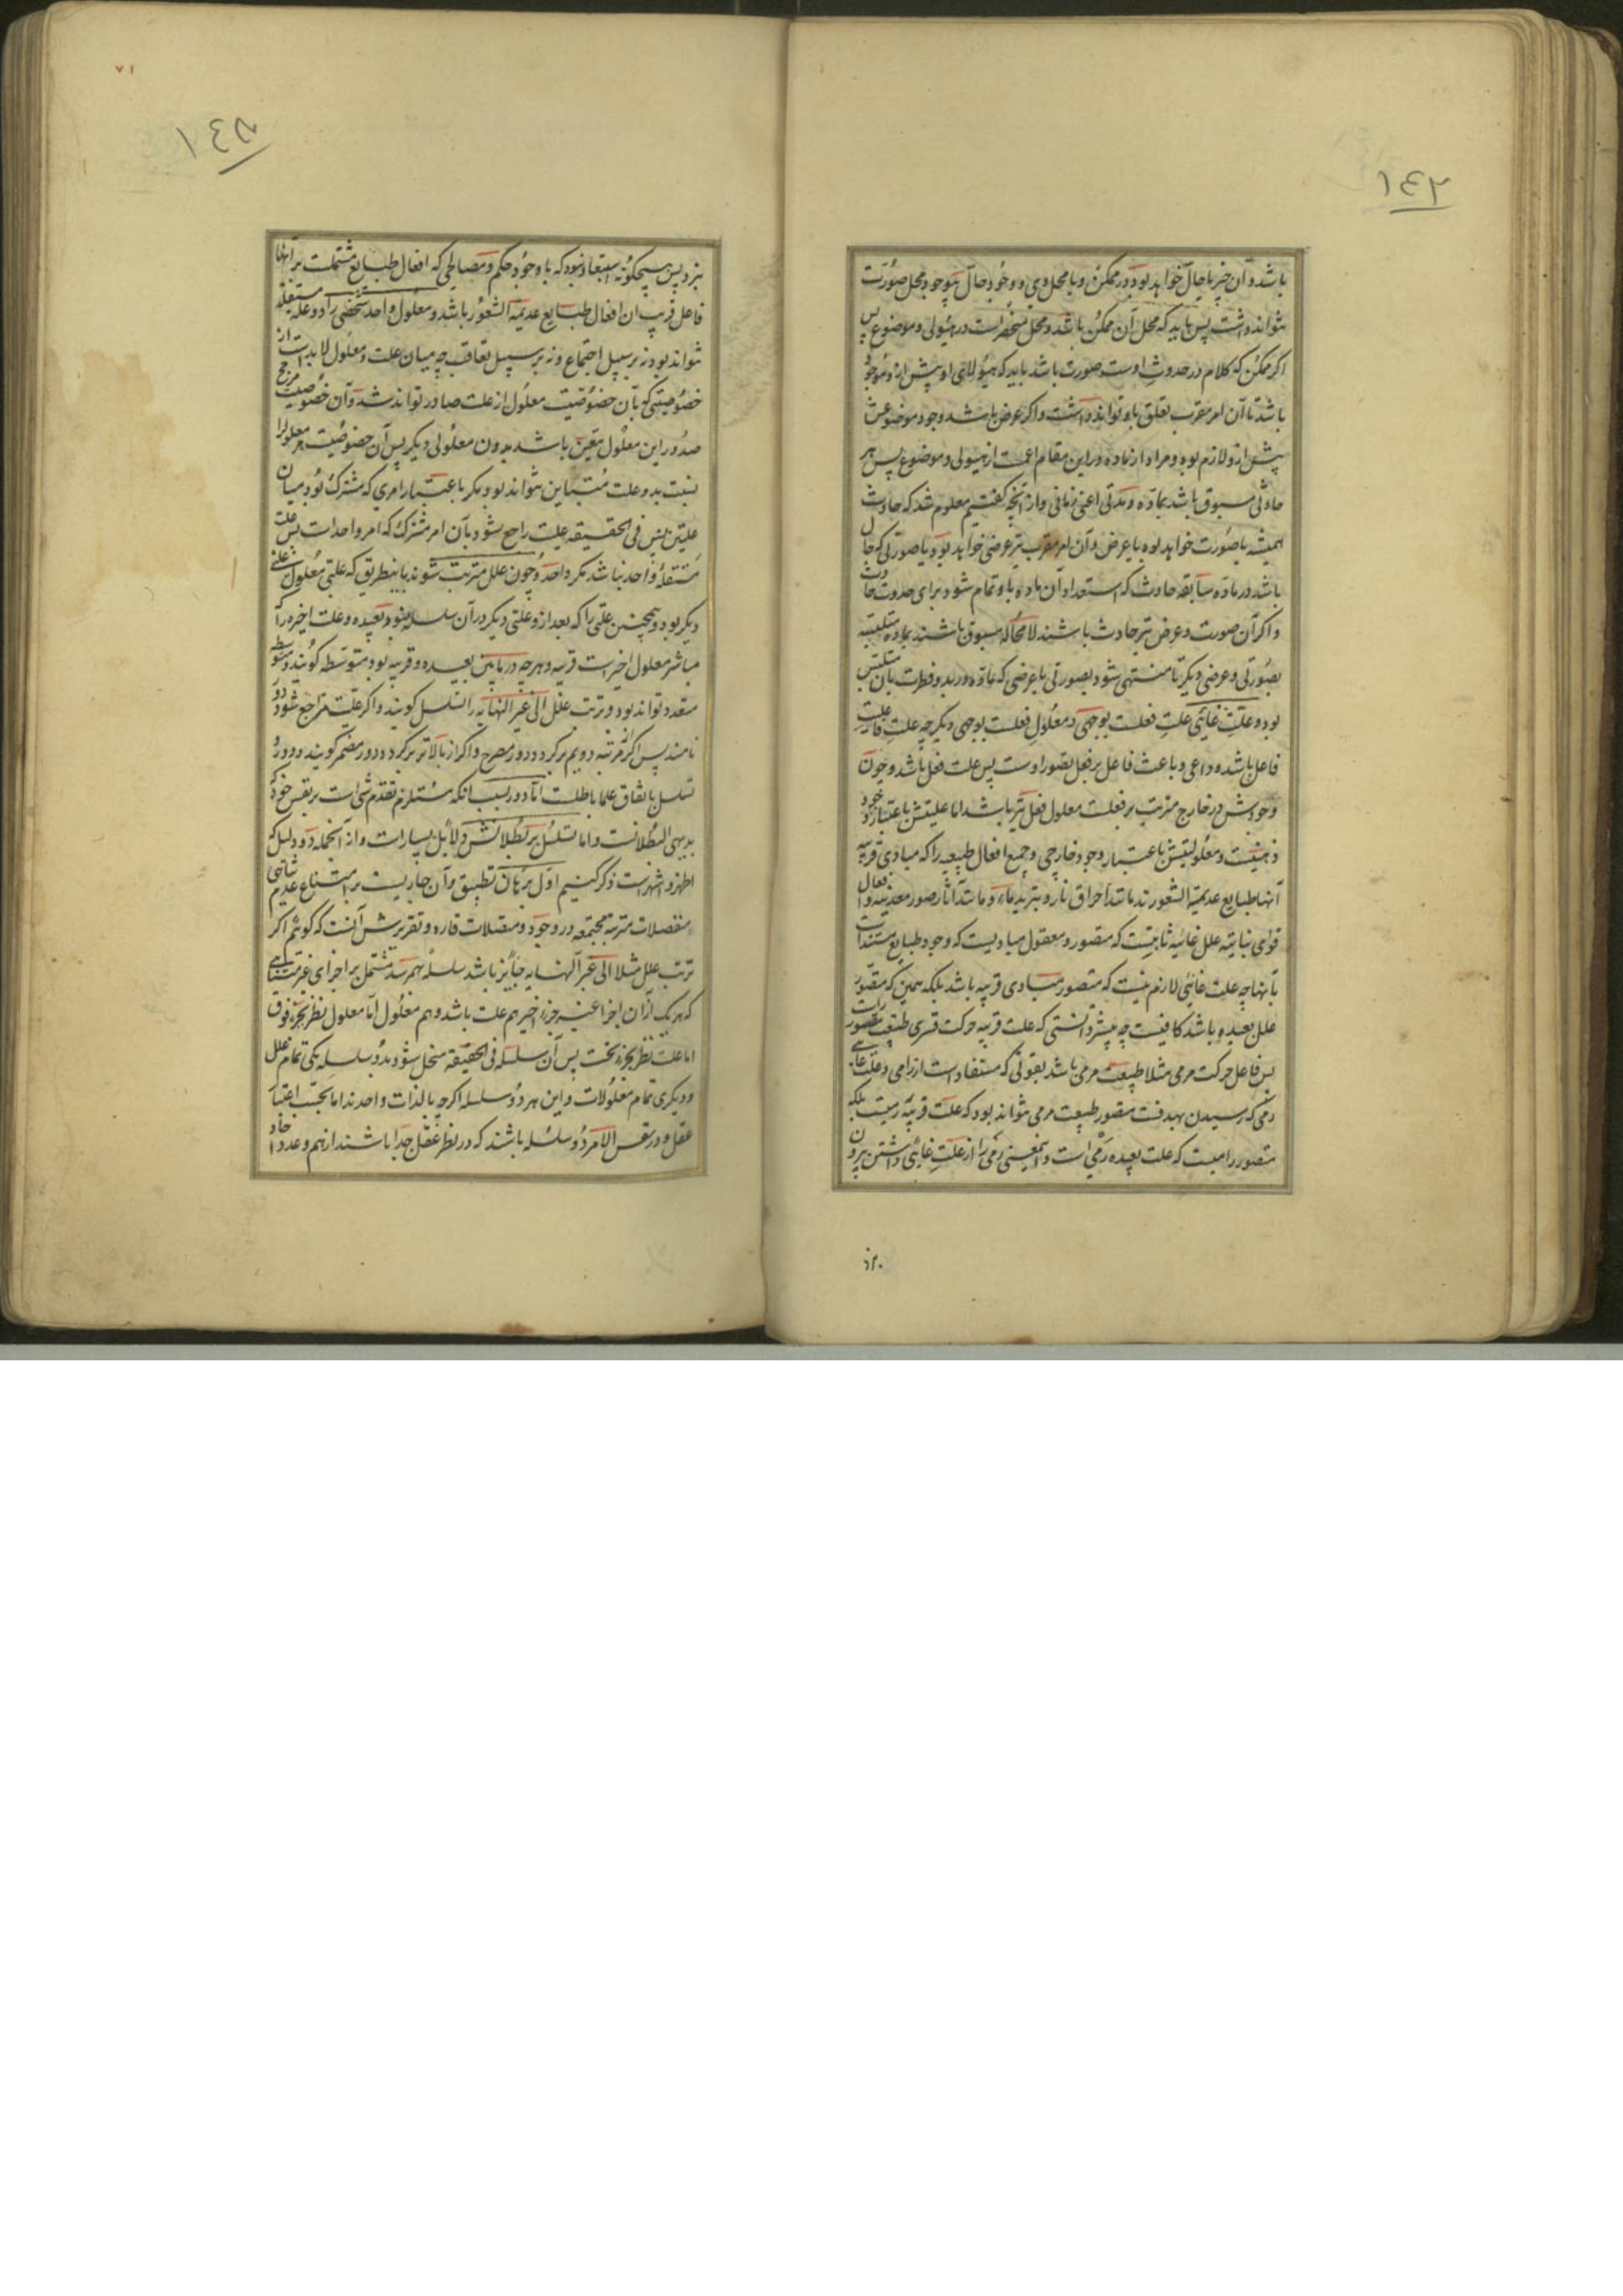 ١٤٢
باشد و آن خیر یا حال خواهد بود در ممکن و یا محل وی و وجود حال بی وجود محل صورت
نتواند داشت پس باید که محل آن ممکن باشد و محل منحصر است در هیولی و موضوع پس
اکر ممکن که کلام در حدوث اوست صورت باشد باید که هیولای او پیش ازو موجود
باشد تا آن امر مقرب تعلق باو تواند داشت و اکر عرض باشد وجود موضوعش
پیش ازو لازم بود و مراد از ماده در این مقام اعم است از هیولی و موضوع پس هر
حادثی مسبوق باشد بماده و مدتی اعنی زمانی و از آنچه کفتیم معلوم شد که حادث
همیشه یا صورت خواهد بود یا عرض و آن امر مقرب نیز عرضی خواهد بود یا صورتی که حال
باشد در ماده سابقه حادث که استعداد آن ماده باو تمام شود برای حدوث حادث
و اکر آن صورت و عرض نیز حادث باشند لا محاله مسبوق باشند بماده متلبسه
بصورتی و عرضی دیکر تا منتهی شود بصورتی یا عرضی که ماده در بدو فطرت بآن متلبس
بود و علت غائی علت فعلست بوجهی و معلول فعلست بوجهی دیکر چه علت فاعلیت
فاعل باشد و داعی و باعث فاعل بر فعل تصور اوست پس علت فعل باشد و چون
وجودش در خارج مترتب بر فعلست معلول فعل نیز باشد اما علیتش باعتبار وجود
ذهنیست و معلولیتش باعتبار وجود خارجی و جمیع افعال طبیعیه را که مبادی قریبه
آنها طبایع عدیمة الشعورند مانند احراق نار و تبرید ماء و مانند آثار صور معدنیه و افعال
قوای نباتیه علل غائیه ثابتست که متصور و معقول مبادیست که وجود طبایع مستند است
بآنها چه علت غائی لازم نیست که متصور مبادی قریبه باشد بلکه همین که متصور
علل بعیده باشد کافیست چه پیشتر دانستی که علت قریبه حرکت قسری طبیعت مقسور است
پس فاعل حرکت مرمی مثلا طبیعت مرمی باشد بقوتی که مستفاد است از رامی و علت غائی
رمی که رسیدن بهدفست متصور طبیعت مرمی نتواند بود که علت قریبه رمیست بلکه
متصور رامیست که علت بعیده رمی است و اینمعنی رمی را از علت غائی داشتن بیرون
نبرد
٧١
١٤٥
نبرد پس هیچکونه استبعاد نبود که با وجود حکم و مصالحی که افعال طبایع مشتملست بر آنها
فاعل قریب ان افعال طبایع عدیمة الشعور باشد و معلول واحد شخصی را دو علة مستقله
نتواند بود نه بر سبیل اجتماع و نه بر سبیل تعاقب چه میان علت و معلول لابد است از
خصوصیتی که بآن خصوصیت معلول از علت صادر تواند شد و آن خصوصیت مرجح
صدور این معلول متعین باشد بدون معلولی دیکر پس آن خصوصیت مر معلول را
نسبت بدو علت متباین نتواند بود مکر باعتبار امری که مشترک بود میان
علتین پس فی الحقیقه علیت راجع شود بآن امر مشترک که امر واحد است پس علت
مستقله واحد نباشد مکر واحد و چون علل مترتب شوند باینطریق که علتی معلول علتی
دیکر بود و همچنین علتی را که بعد ازو علتی دیکر در آن سلسله نبود بعیده و علت اخیره را که
مباشر معلول اخیر است قریبه و هرچه در مابین بعیده و قریبه بود متوسطه کویند و متوسطه
متعدد تواند بود و ترتب علل الی غیر النهایه را تسلسل کویند و اکر علت راجع شود دور
نامند پس اکر از مرتبه دویم برکردد دور مصرح و اکر از بالاتر برکردد دور مضمر کویند و دور و
تسلسل باتفاق علما باطلست اما دور بسبب انکه مستلزم تقدم شیء است بر نفس خود که
بدیهی البطلانست و اما تسلسل بر بطلانش دلایل بسیار است و از آنجمله دو دلیل که
اظهر و اشهر است ذکر کنیم اول برهان تطبیق و آن جاریست بر امتناع عدم تناهی
منفصلات مترتبه مجتمعه در وجود و متصلات قاره و تقریرش آنست که کوئیم اکر
ترتب علل مثلا الی غیر النهایه جایز باشد سلسله بهم رسد مشتمل بر اجزای غیر متناهی
که هر یک از آن اجزا غیر جزء اخیر هم علت باشد و هم معلول اما معلول نظر بجزء فوق
اما علت نظر بجزء تحت پس آن سلسله فی الحقیقه منحل شود بدو سلسله یکی تمام علل
و دیکری تمام معلولات و این هر دو سلسله اکرچه بالذات واحدند اما بحسب اعتبار
عقل و در نفس الامر دو سلسله باشند که در نظر عقل جدا باشند از هم و عدد آحاد